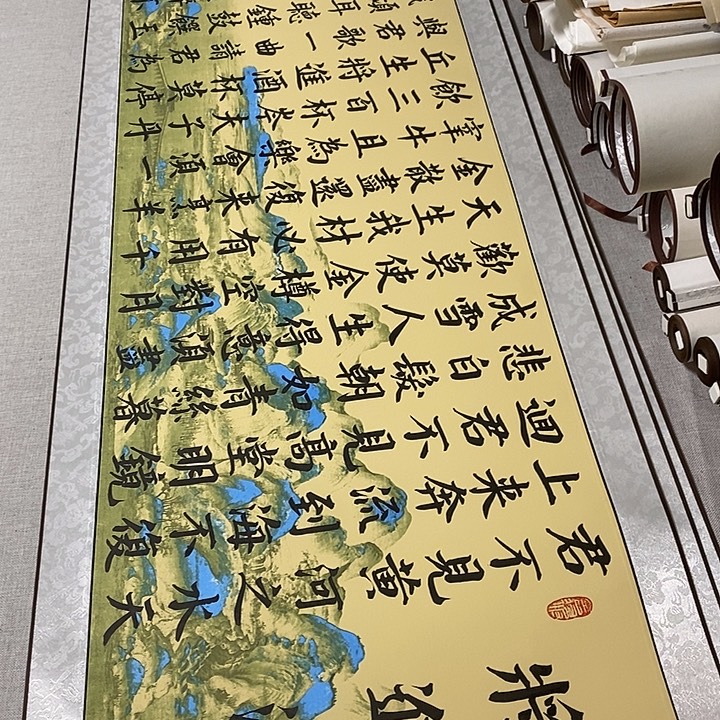 君不見黃河之水天
上來奔流到海不復
迴君不見高堂明鏡
悲白髮朝如青絲暮
成雪人生得意須盡
歡莫使金樽空對月
天生我材必有用千
金散盡還復來烹羊
宰牛且為樂會須一
飲三百杯岑夫子丹
丘生將進酒杯莫停
與君歌一曲請君為
傾耳聽鍾鼓饌玉